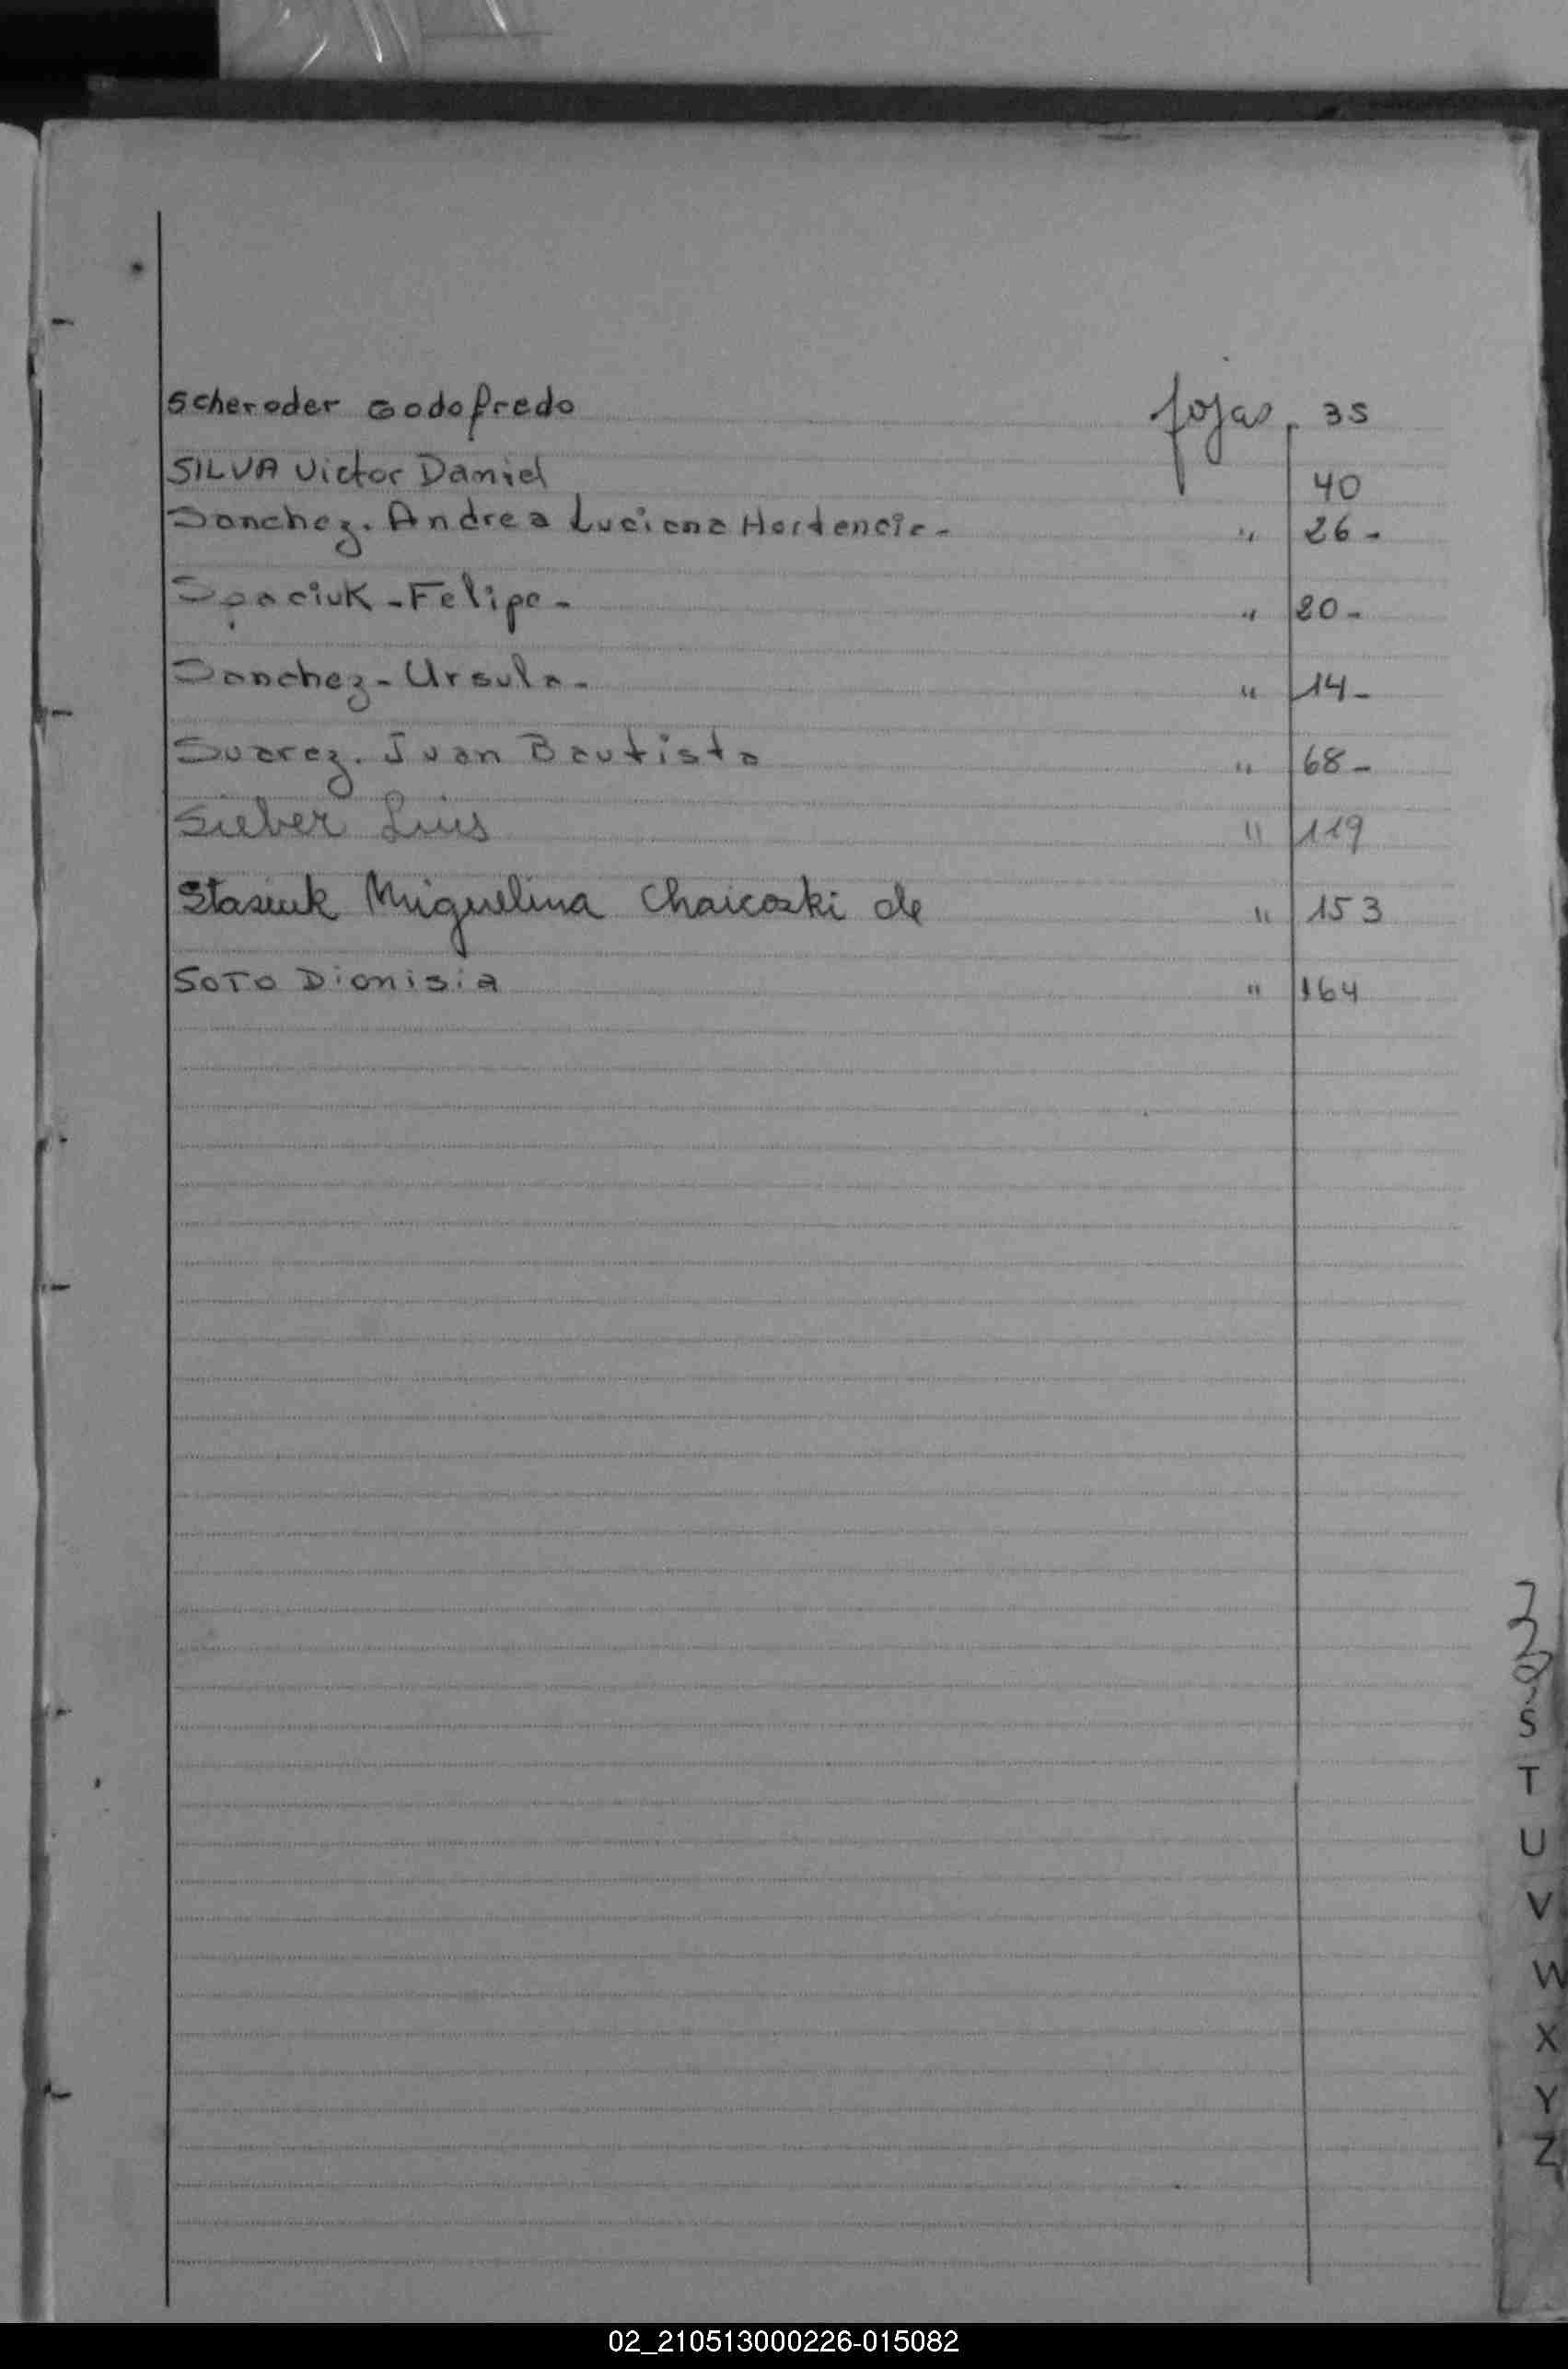 Scheroder Godofredo fojas 35
SILVA Victor Daniel 40
Sanchez. Andrea Luciana Hortencia- " 26-
Spaciuk-Felipe- " 20-
Sanchez-Ursula- " 14-
Suarez. Juan Bautista " 68-
Sieber Luis " 119
Stasiuk Miguelina Chaicoski de " 153
SOTO Dionisia " 164
S
T
U
V
W
X
Y
Z
02_210513000226-015082